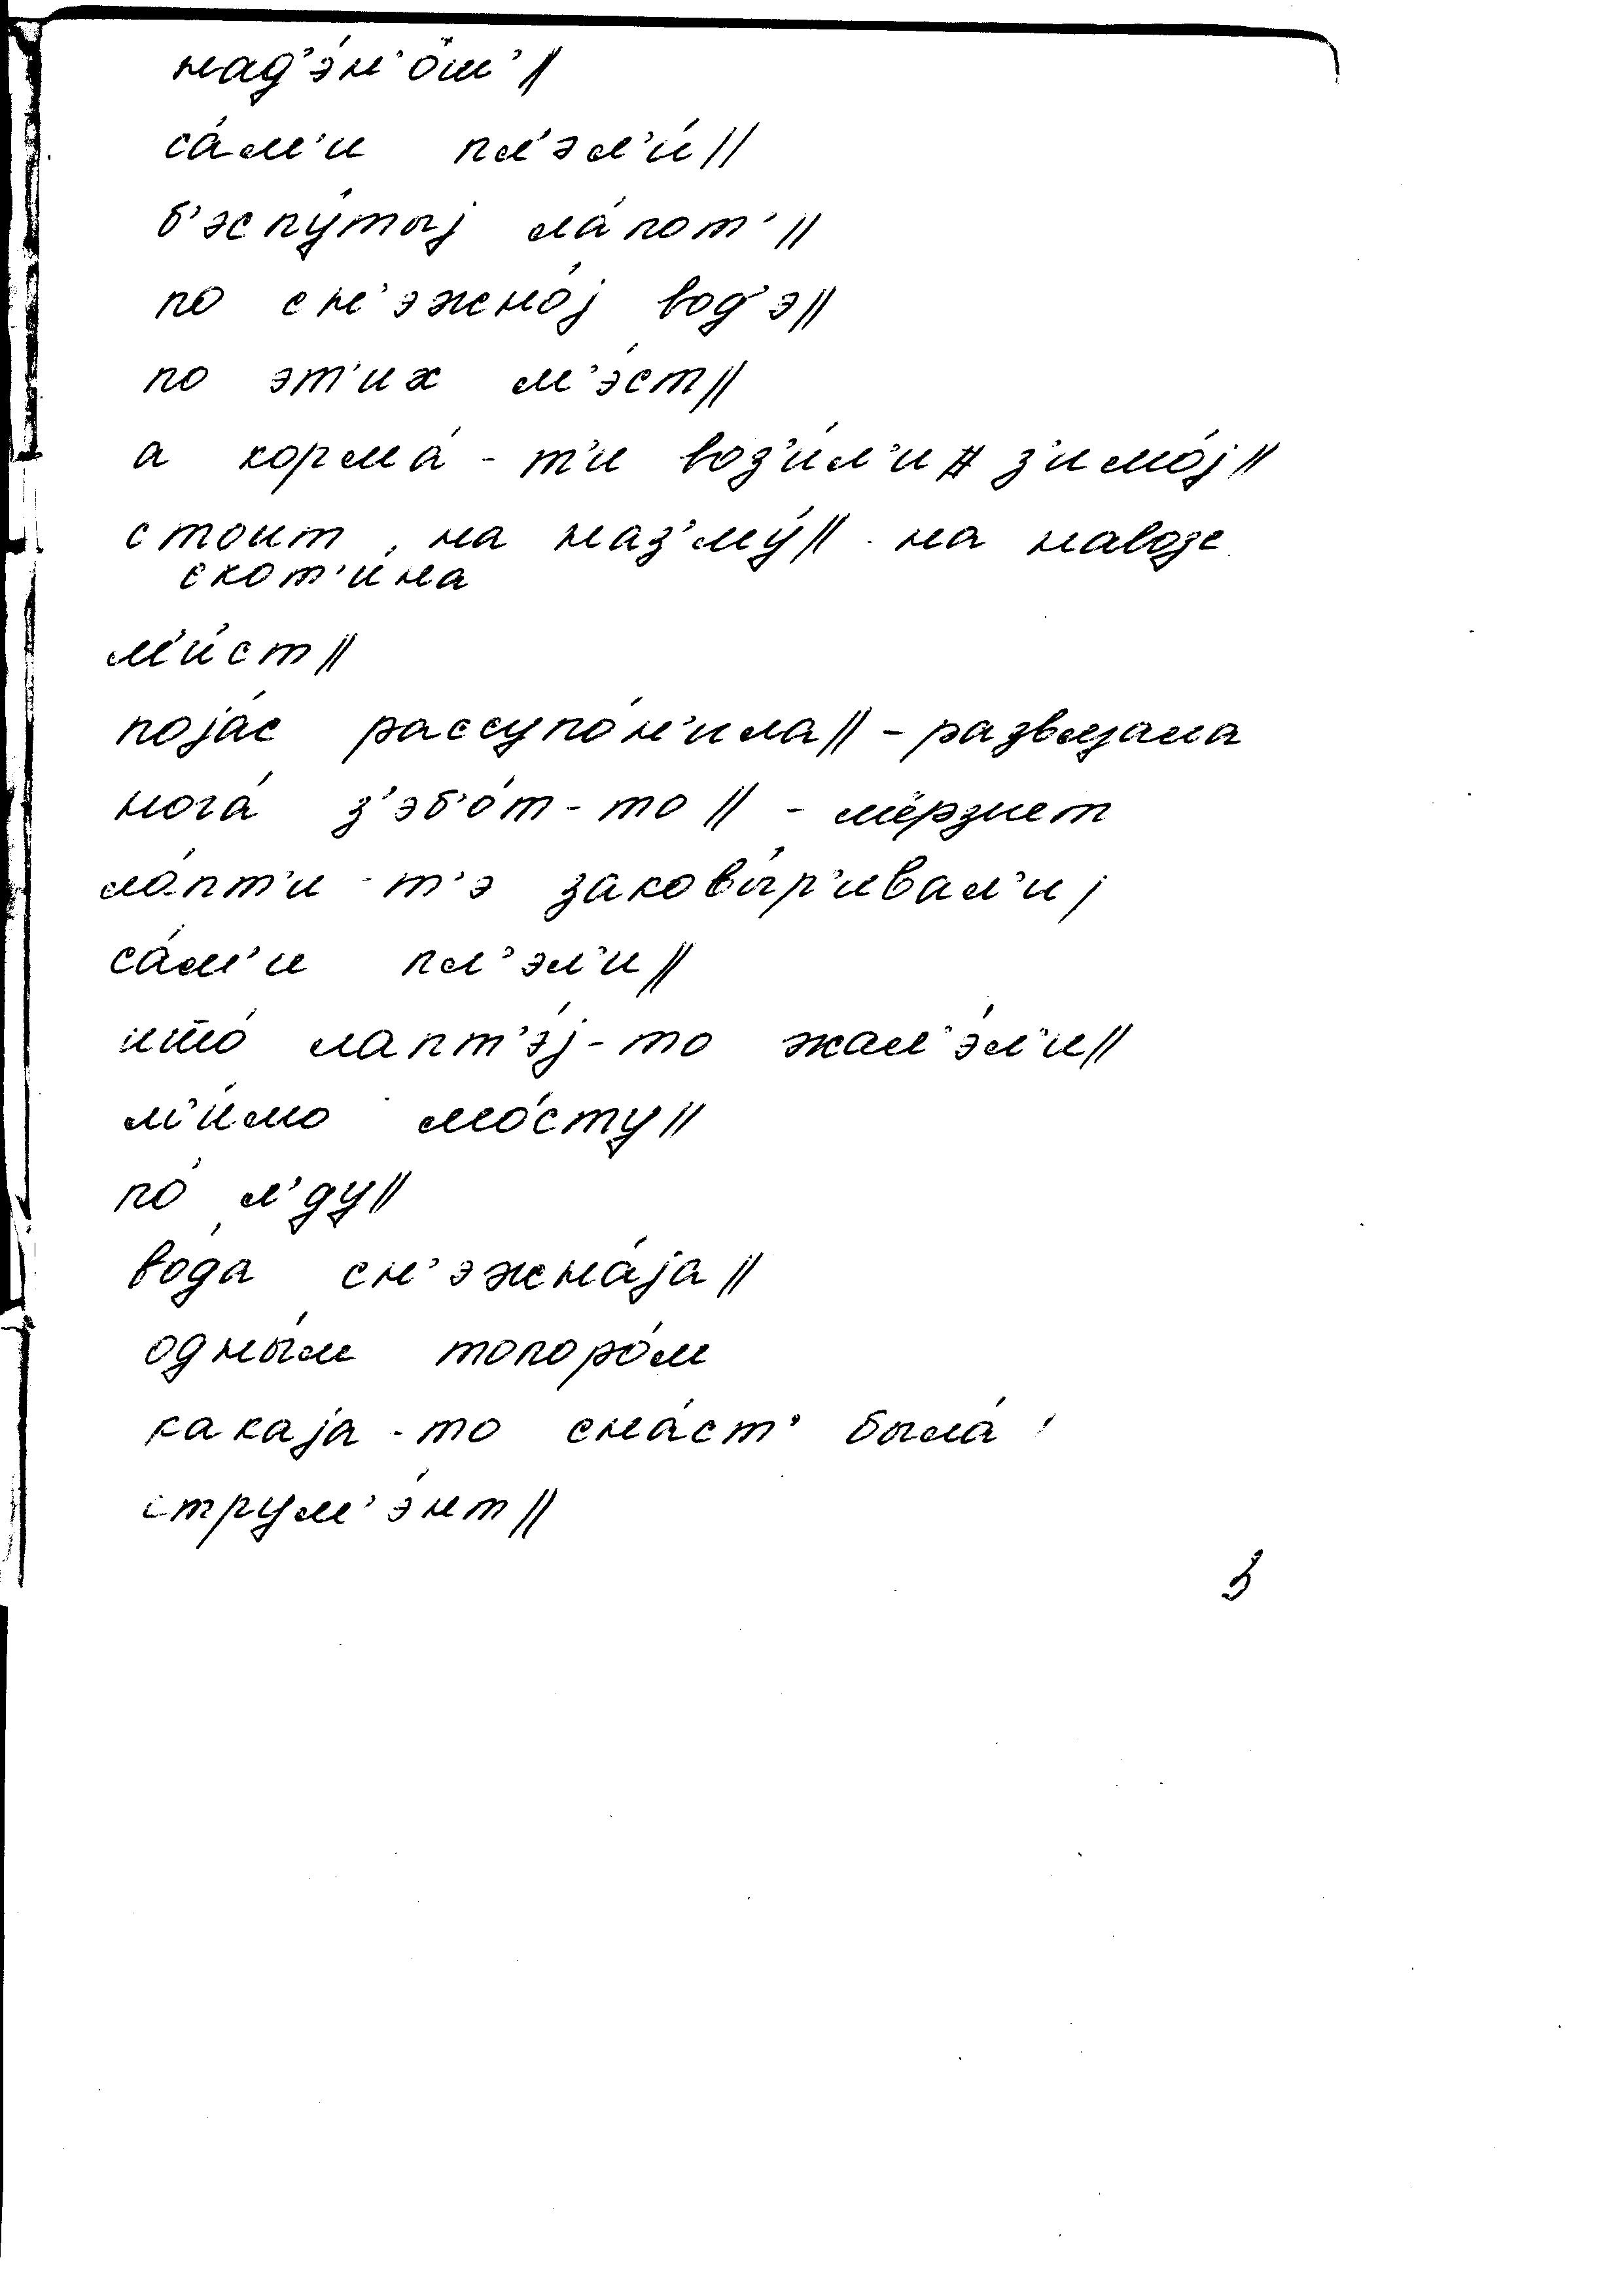 над'э́н'ош'//
са́м'и пл'эл'и́//
б'эспу́тыј ла́пот'//
по сн'эжно́ј вод'э//
по эт'их м'э́ст//
а корма́-т'и воз'и́л'и // з'имо́ј//
стоит, на наз'му́// на навозе
скот'и́на
м'и́ст//
поја́с рассупо́н'ила// - развязала
нога́ з'эб'о́т-то // - мёрзнет
ла́пт'и-т'э заковы́р'ивал'и/
са́м'и пл'эл'и//
што́ лапт'э́ј-то жал'э́л'и//
м'и́мо мо́сту//
по́ л'ду//
вода́ сн'эжна́ја//
одны́м топоро́м
какаја-то сна́ст' была́
струм'э́нт//
3